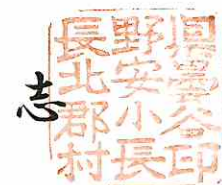 長野県
北安曇
郡小谷
村長印
志